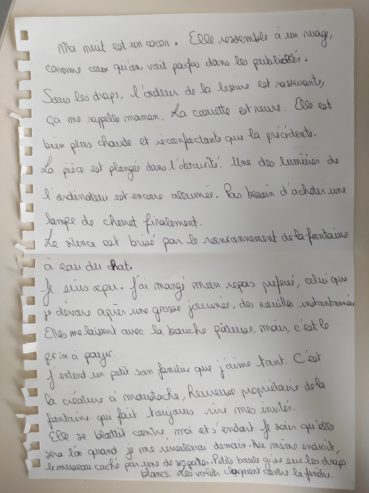 Ma nuit est un cocon. Elle ressemble à un nuage,
comme ceux qu'on voit parfois dans les publicités.
Sous les draps, l'odeur de la lessive est rassurante,
ça me rappelle maman. La couette est neuve. Elle est
bien plus chaude et réconfortante que la précédente.
La pièce est plongée dans l'obscurité. Une des lumières de
l'ordinateur est encore allumée. Pas besoin d'acheter une
lampe de chevet finalement.
Le silence est brisé par le ronronnement de la fontaine
à eau du chat.
Je suis repue. J'ai mangé mon repas préféré, celui que
je dévore après une grosse journée, des nouilles instantanées.
Elles me laissent avec la bouche pâteuse, mais, c'est le
prix à payer.
J'entend un petit son familier que j'aime tant. C'est
la créature à moustache, heureuse propriétaire de la
fontaine qui fait toujours rire mes invités.
Elle se blottit contre moi et s'endort. Je sais qu'elle
sera là quand je me réveillerai demain. Au même endroit,
le museau caché par une de ses pattes. Petite boule grise sur les draps
blancs. Les volets claquent contre la fenêtre.